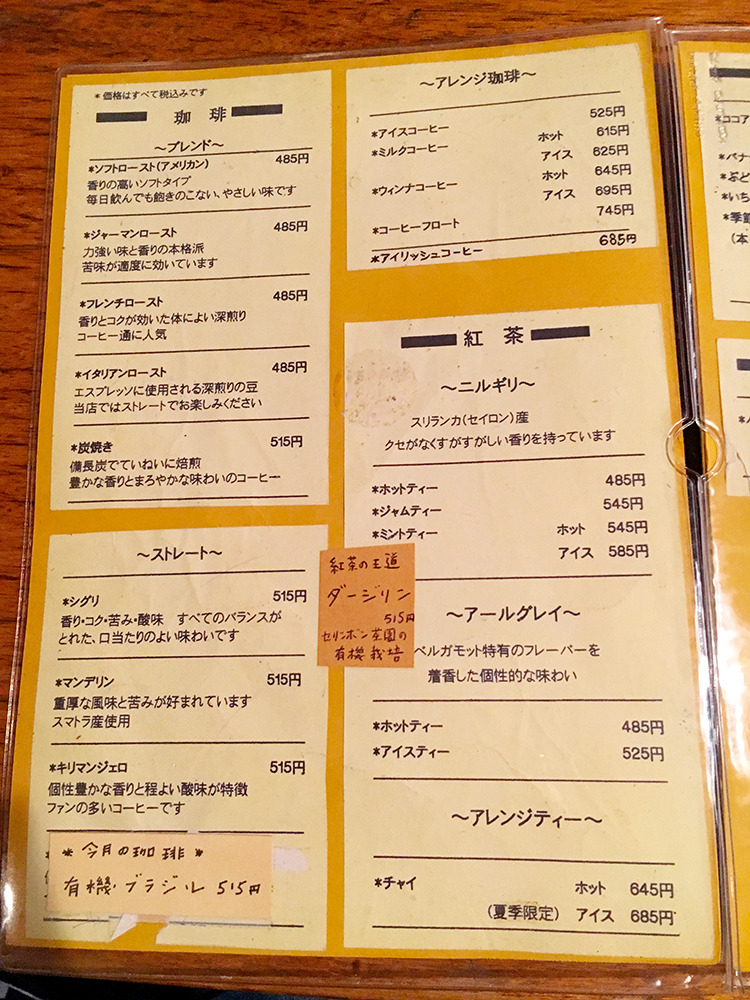 *価格はすべて税込みです
珈琲
～ブレンド～
*ソフトロースト(アメリカン) 485円
香りの高いソフトタイプ
毎日飲んでも飽きのこない、やさしい味です
*ジャーマンロースト 485円
力強い味と香りの本格派
苦味が適度に効いています
*フレンチロースト 485円
香りとコクが効いた体によい深煎り
コーヒー通に人気
*イタリアンロースト 485円
エスプレッソに使用される深煎りの豆
当店ではストレートでお楽しみください
*炭焼き 515円
備長炭でていねいに焙煎
豊かな香りとまろやかな味わいのコーヒー
～ストレート～
*シグリ 515円
香り・コク・苦み・酸味 すべてのバランスが
とれた、口当たりのよい味わいです
*マンデリン 515円
重厚な風味と苦みが好まれています
スマトラ産使用
*キリマンジェロ 515円
個性豊かな香りと程よい酸味が特徴
ファンの多いコーヒーです
*今月の珈琲*
有機ブラジル 515円
～アレンジ珈琲～
*アイスコーヒー 525円
*ミルクコーヒー ホット 615円
アイス 625円
*ウィンナコーヒー ホット 645円
アイス 695円
*コーヒーフロート 745円
*アイリッシュコーヒー 685円
紅茶
～ニルギリ～
スリランカ(セイロン)産
クセがなくすがすがしい香りを持っています
*ホットティー 485円
*ジャムティー 545円
*ミントティー ホット 545円
アイス 585円
紅茶の王道
ダージリン
515円
セリンボン茶園の
有機栽培
～アールグレイ～
ベルガモット特有のフレーバーを
着香した個性的な味わい
*ホットティー 485円
*アイスティー 525円
～アレンジティー～
*チャイ ホット 645円
(夏季限定) アイス 685円
*ココア
*バナ
*ぶど
*いち
*季節
(本